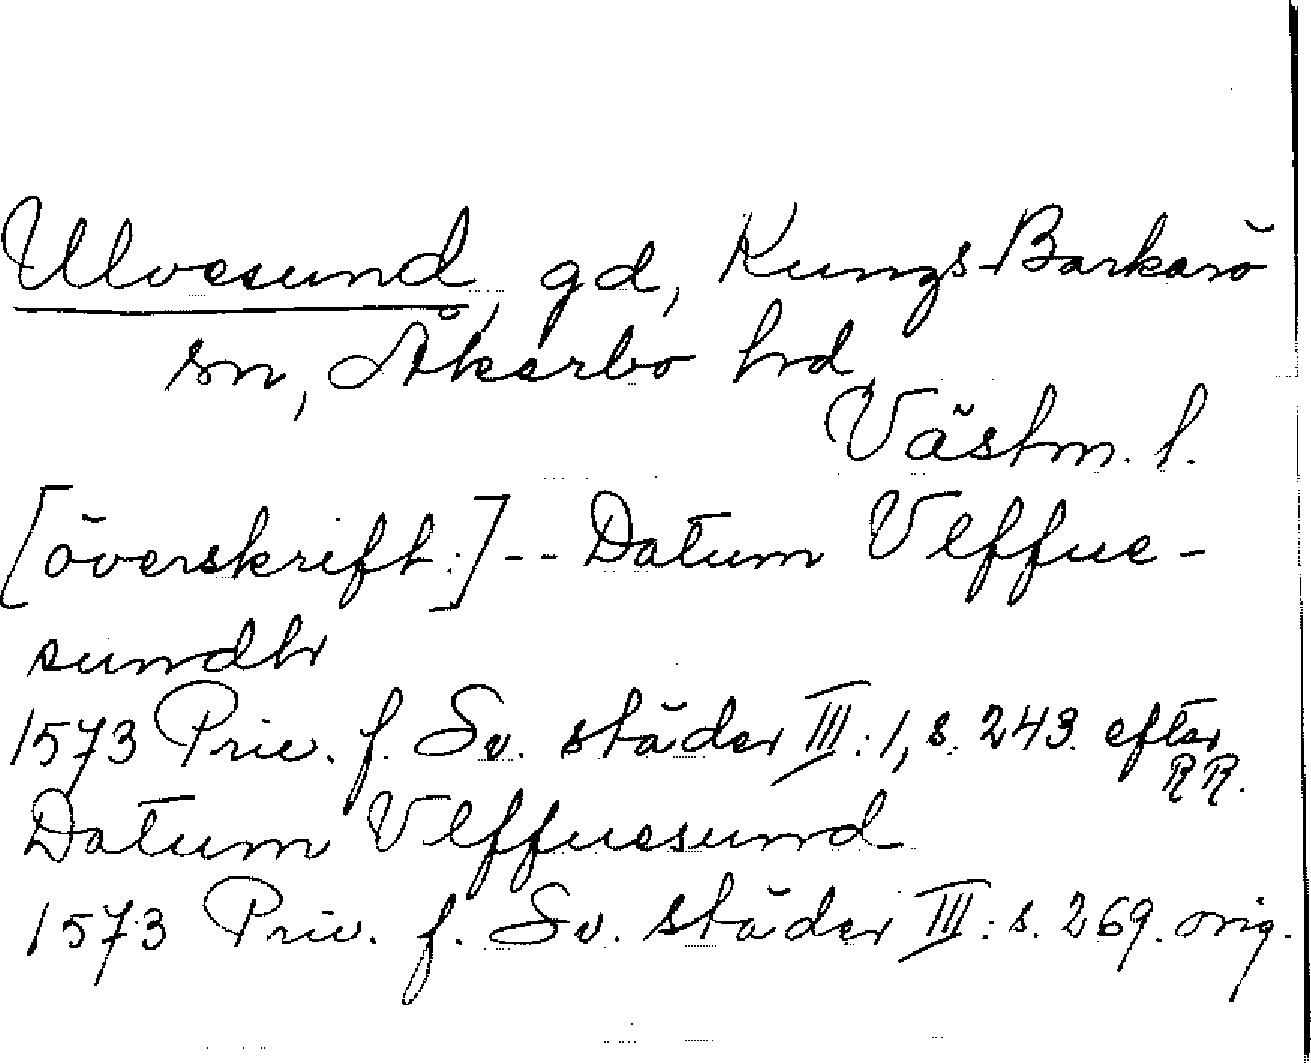 Ulvesund, gd, Kungs-Barkarö
sn, Åkerbo hd,
Västm. l.
[överskrift:] -- Datum Vlffue-
sundh
1573 Priv. f. Sv. städer III: 1, s. 243. efter
RR.
Datum Vlffuesund
1573 Priv. f. Sv. städer III: s. 269. orig.